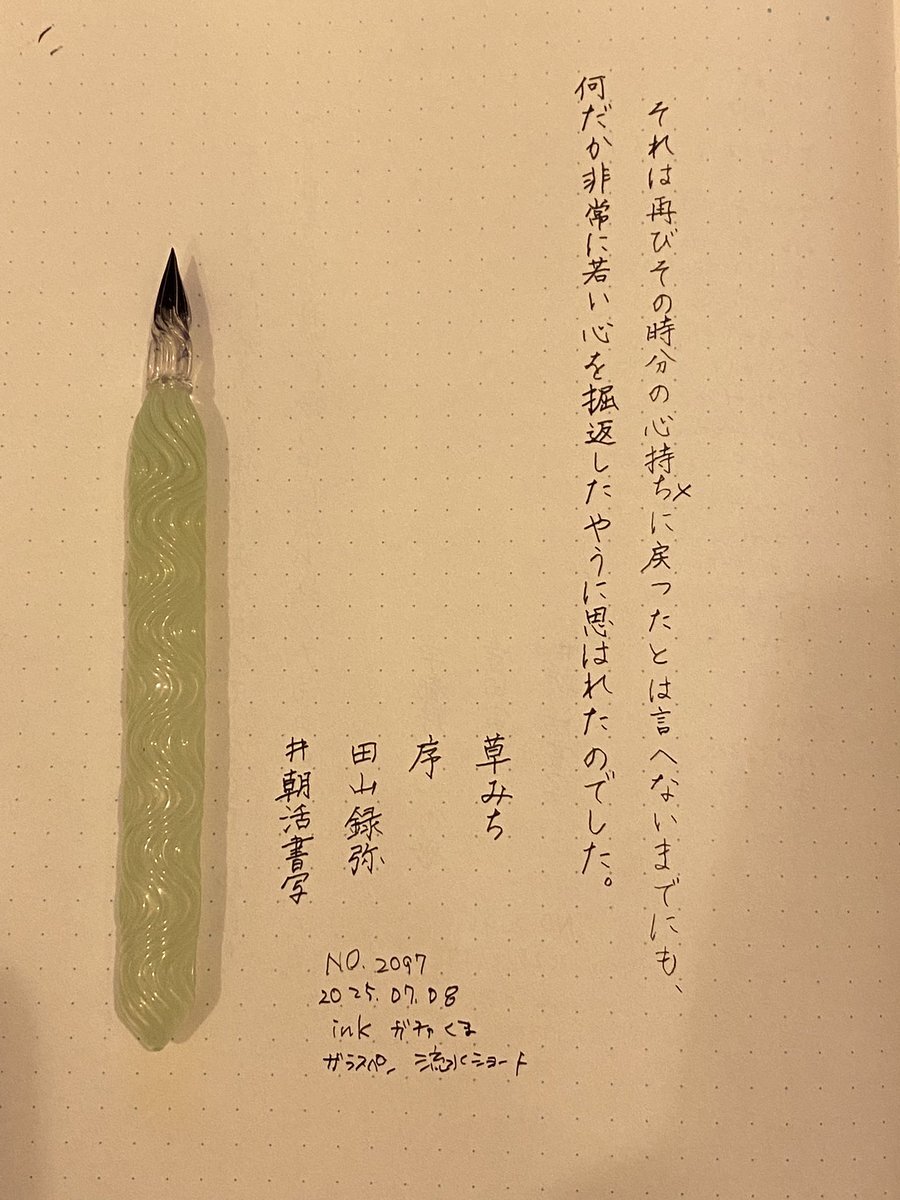 それは再びその時分の心持ちに戻つたとは言へないまでにも、
何だか非常に若い心を掘返したやうに思はれたのでした。
草みち
序
田山録弥
#朝活書写
NO.2097
2025.07.08
ink ガチャくま
ガラスペン 流水ショート